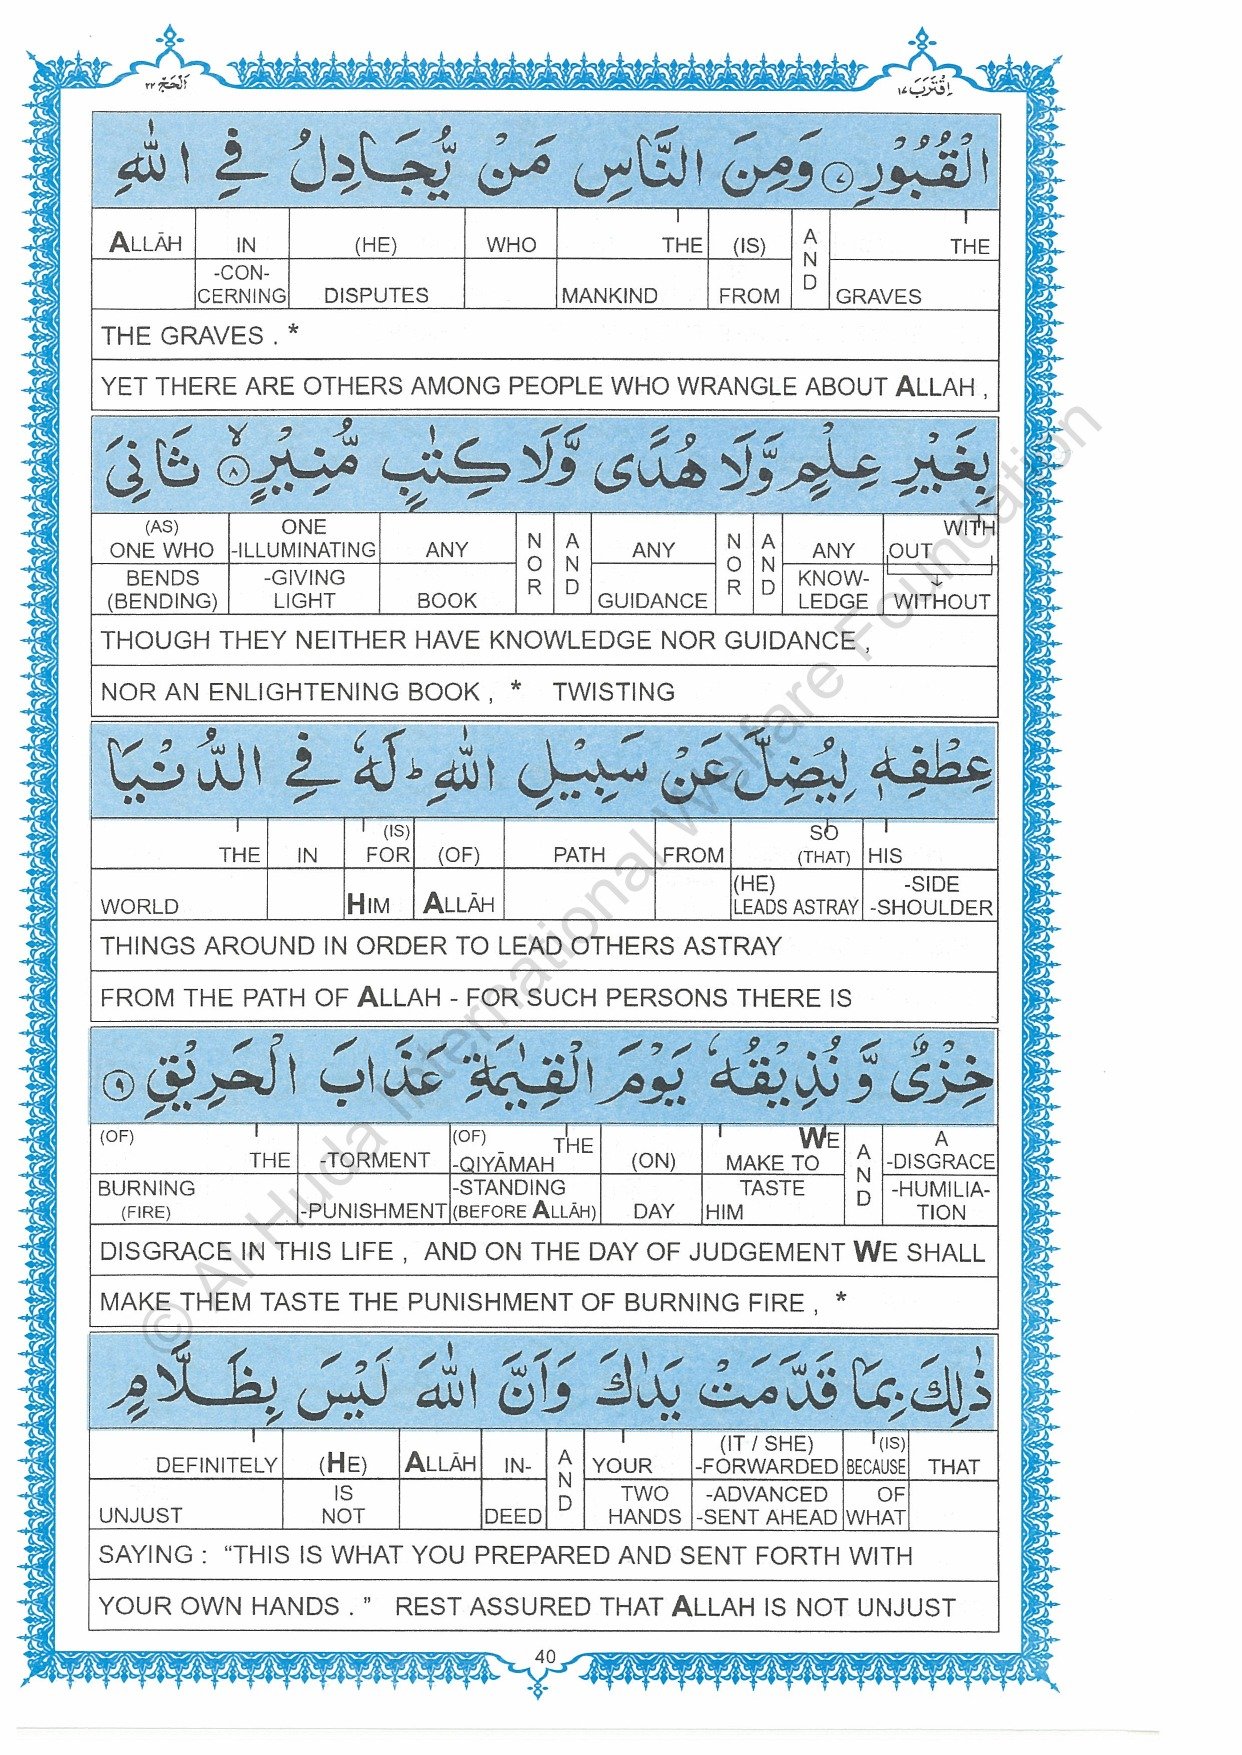 اَلْحَجّ ٢٢
اِقْتَرَبَ ١٧
الْقُبُوْرِ ۝٧ وَمِنَ النَّاسِ مَنْ يُّجَادِلُ فِي اللّٰهِ
ALLĀH IN (HE) WHO THE (IS) AND THE
-CON-CERNING DISPUTES MANKIND FROM GRAVES
THE GRAVES . *
YET THERE ARE OTHERS AMONG PEOPLE WHO WRANGLE ABOUT ALLAH ,
بِغَيْرِ عِلْمٍ وَّلَا هُدًى وَّلَا كِتٰبٍ مُّنِيْرٍ ۝٨ ۙ ثَانِيَ
(AS) ONE WHO ONE -ILLUMINATING ANY NOR AND ANY NOR AND ANY WITH OUT
BENDS (BENDING) -GIVING LIGHT BOOK GUIDANCE KNOW-LEDGE WITHOUT
THOUGH THEY NEITHER HAVE KNOWLEDGE NOR GUIDANCE ,
NOR AN ENLIGHTENING BOOK , * TWISTING
عِطْفِهٖ لِيُضِلَّ عَنْ سَبِيْلِ اللّٰهِ ؕ لَهٗ فِي الدُّنْيَا
THE IN (IS) FOR (OF) PATH FROM SO (THAT) HIS
WORLD HIM ALLĀH (HE) LEADS ASTRAY -SIDE -SHOULDER
THINGS AROUND IN ORDER TO LEAD OTHERS ASTRAY
FROM THE PATH OF ALLAH - FOR SUCH PERSONS THERE IS
خِزْىٌ وَّنُذِيْقُهٗ يَوْمَ الْقِيٰمَةِ عَذَابَ الْحَرِيْقِ ۝٩
(OF) THE -TORMENT (OF) THE -QIYĀMAH (ON) WE MAKE TO AND A -DISGRACE
BURNING (FIRE) -PUNISHMENT -STANDING (BEFORE ALLĀH) DAY TASTE HIM -HUMILIA-TION
DISGRACE IN THIS LIFE , AND ON THE DAY OF JUDGEMENT WE SHALL
MAKE THEM TASTE THE PUNISHMENT OF BURNING FIRE , *
ذٰلِكَ بِمَا قَدَّمَتْ يَدٰكَ وَاَنَّ اللّٰهَ لَيْسَ بِظَلَّامٍ
DEFINITELY (HE) ALLĀH IN- AND YOUR (IT / SHE) -FORWARDED (IS) BECAUSE THAT
UNJUST IS NOT DEED TWO HANDS -ADVANCED -SENT AHEAD OF WHAT
SAYING : “THIS IS WHAT YOU PREPARED AND SENT FORTH WITH
YOUR OWN HANDS . ” REST ASSURED THAT ALLAH IS NOT UNJUST
40
© Al-Huda International Welfare Foundation